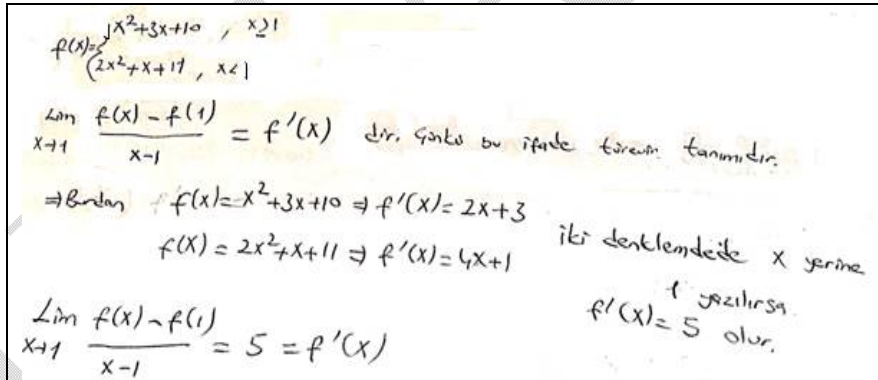 f(x)={x²+3x+10 , x≥1
{2x²+x+11 , x<1
Lim x→1 f(x)-f(1) / x-1 = f'(x) dir. Çünkü bu ifade türevin tanımıdır.
⇒ Burdan f(x)=x²+3x+10 ⇒ f'(x)=2x+3
f(x)=2x²+x+11 ⇒ f'(x)=4x+1 iki denklemdede x yerine
1 yazılırsa
f'(x)=5 olur.
Lim x→1 f(x)-f(1) / x-1 = 5 = f'(x)